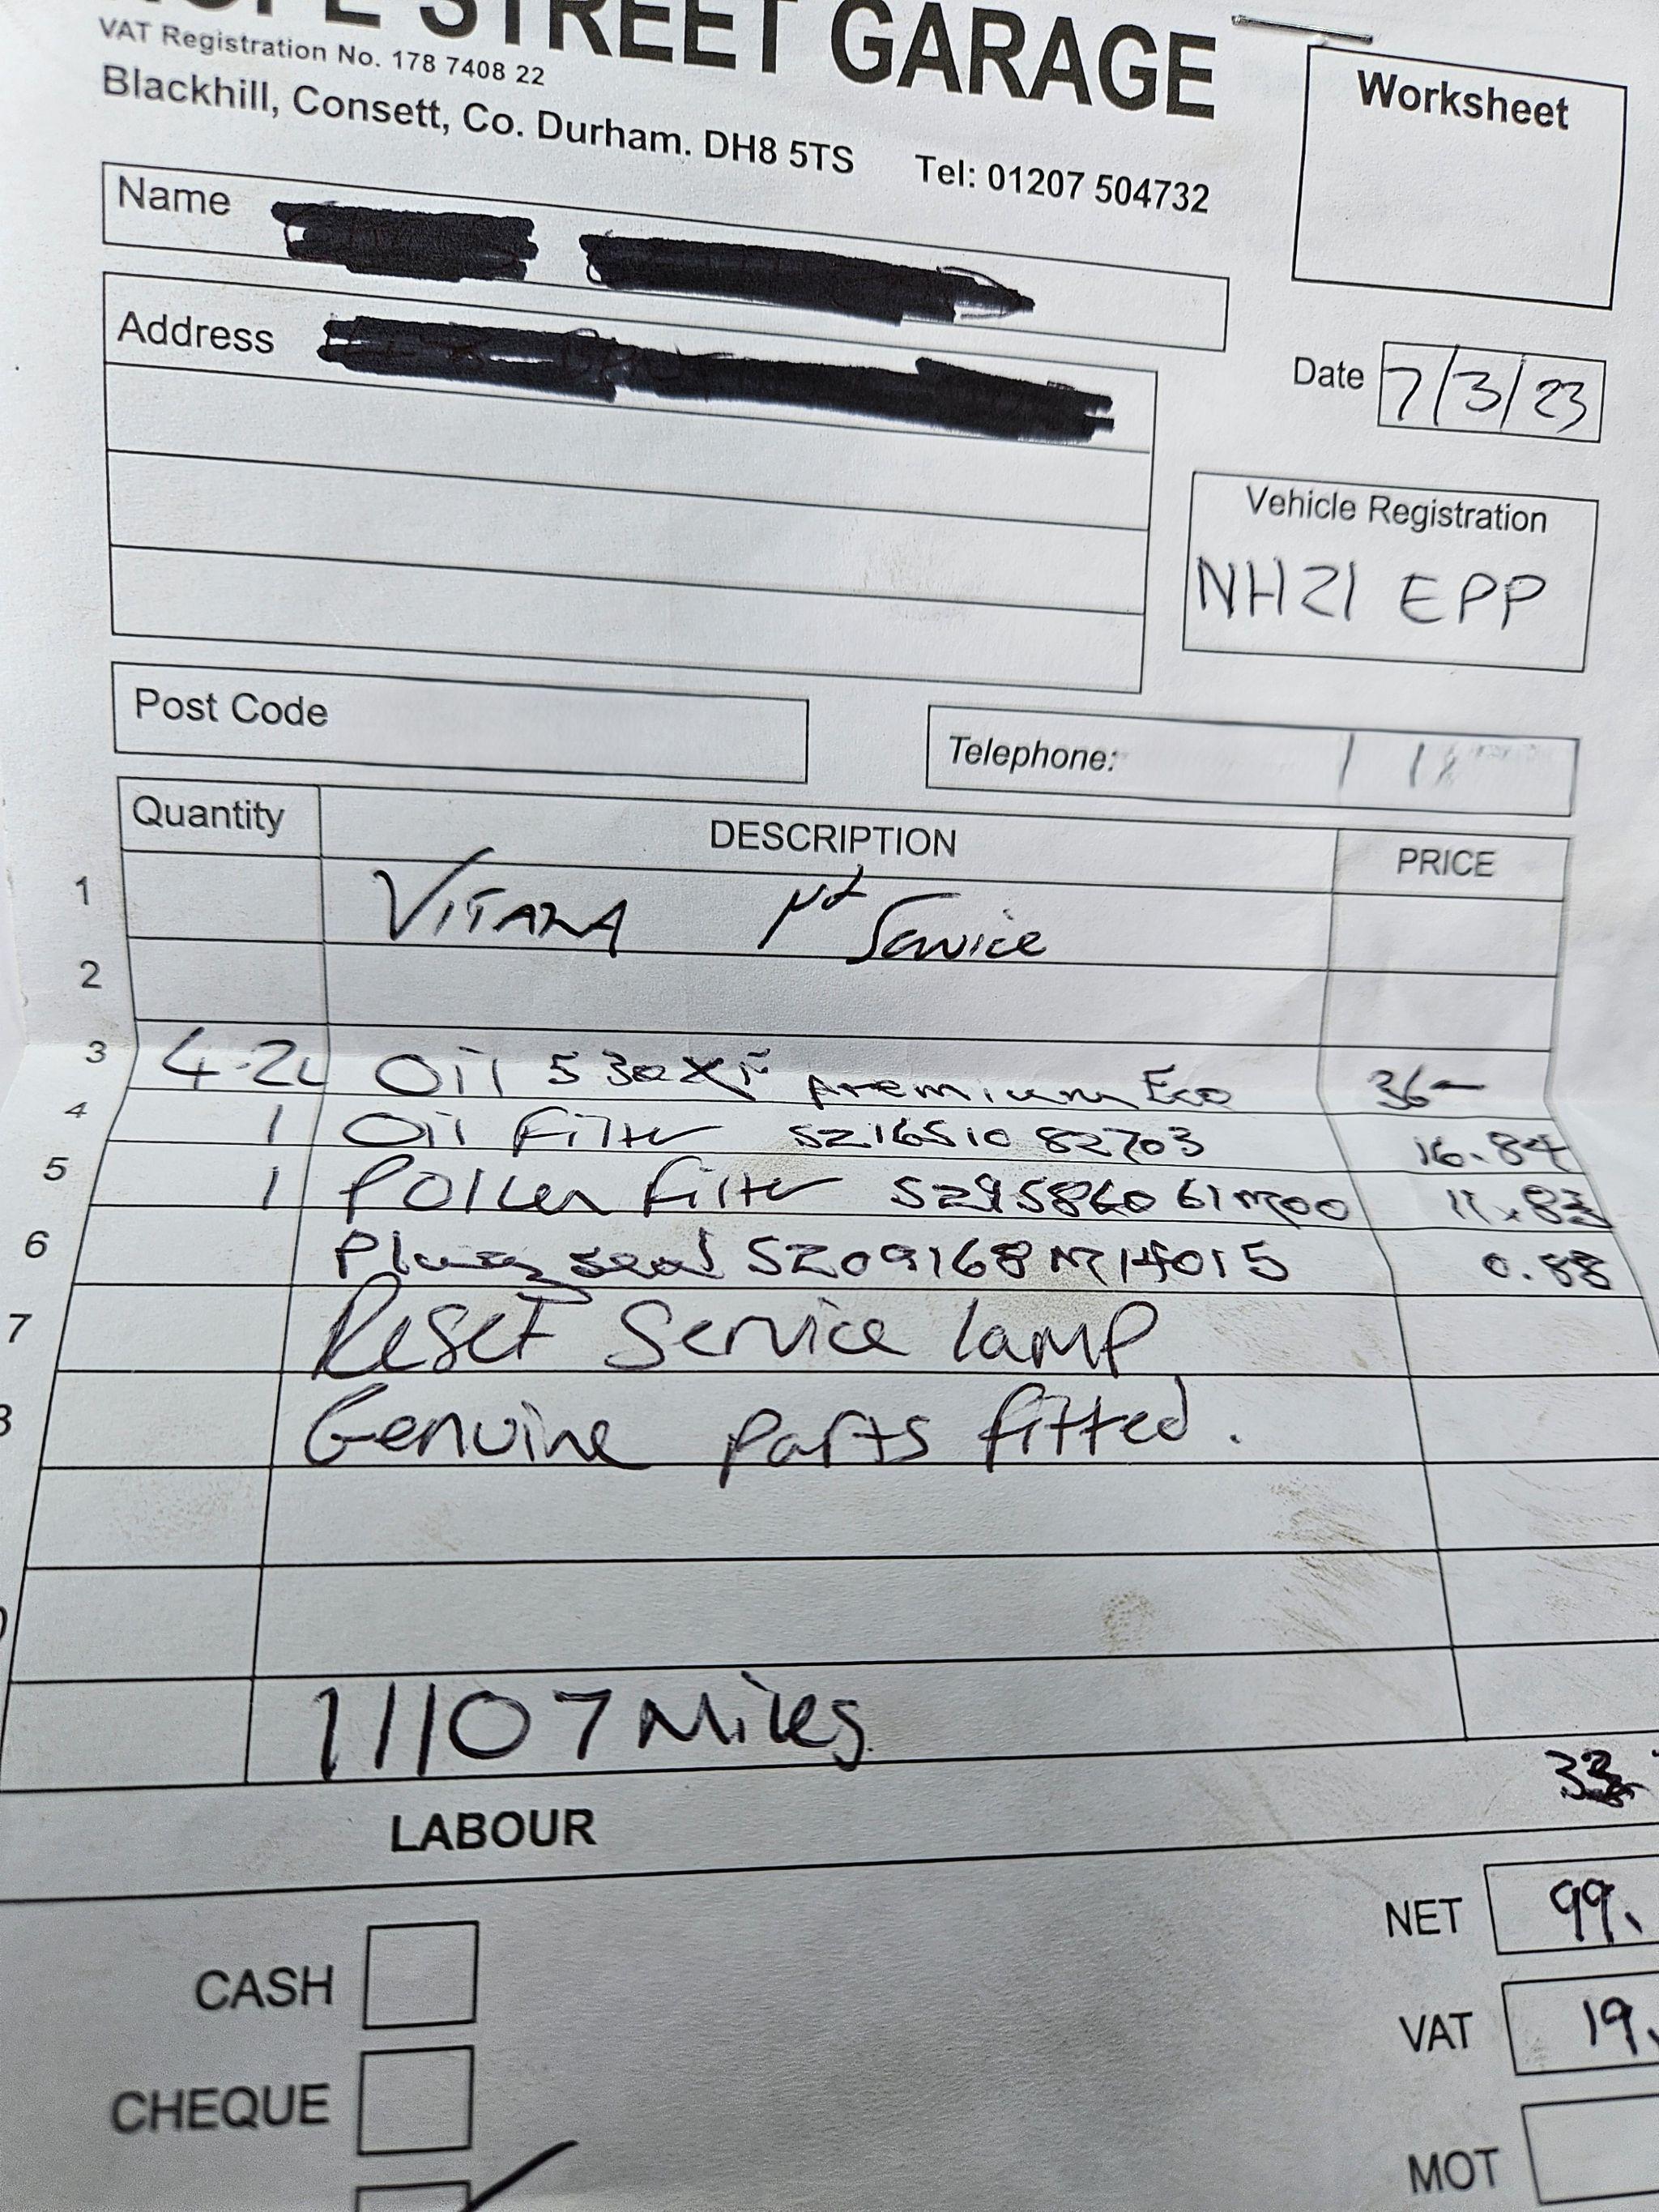 STREET GARAGE
VAT Registration No. 178 7408 22
Blackhill, Consett, Co. Durham. DH8 5TS Tel: 01207 504732
Worksheet
Name
Address
Date 7/3/23
Vehicle Registration
NH21 EPP
Post Code
Telephone:
Quantity DESCRIPTION PRICE
1 VITARA 1st Service
2
3 4.2L Oil 530 XF premium Eco 36-
4 1 Oil Filter SZ1651082703 16.84
5 1 Pollen Filter 11.83
6 Plug seal SZ09168M14015 0.88
7 Reset Service lamp
Genuine parts fitted.
11107 Miles
LABOUR 33
NET 99.
CASH
VAT 19.
CHEQUE
MOT